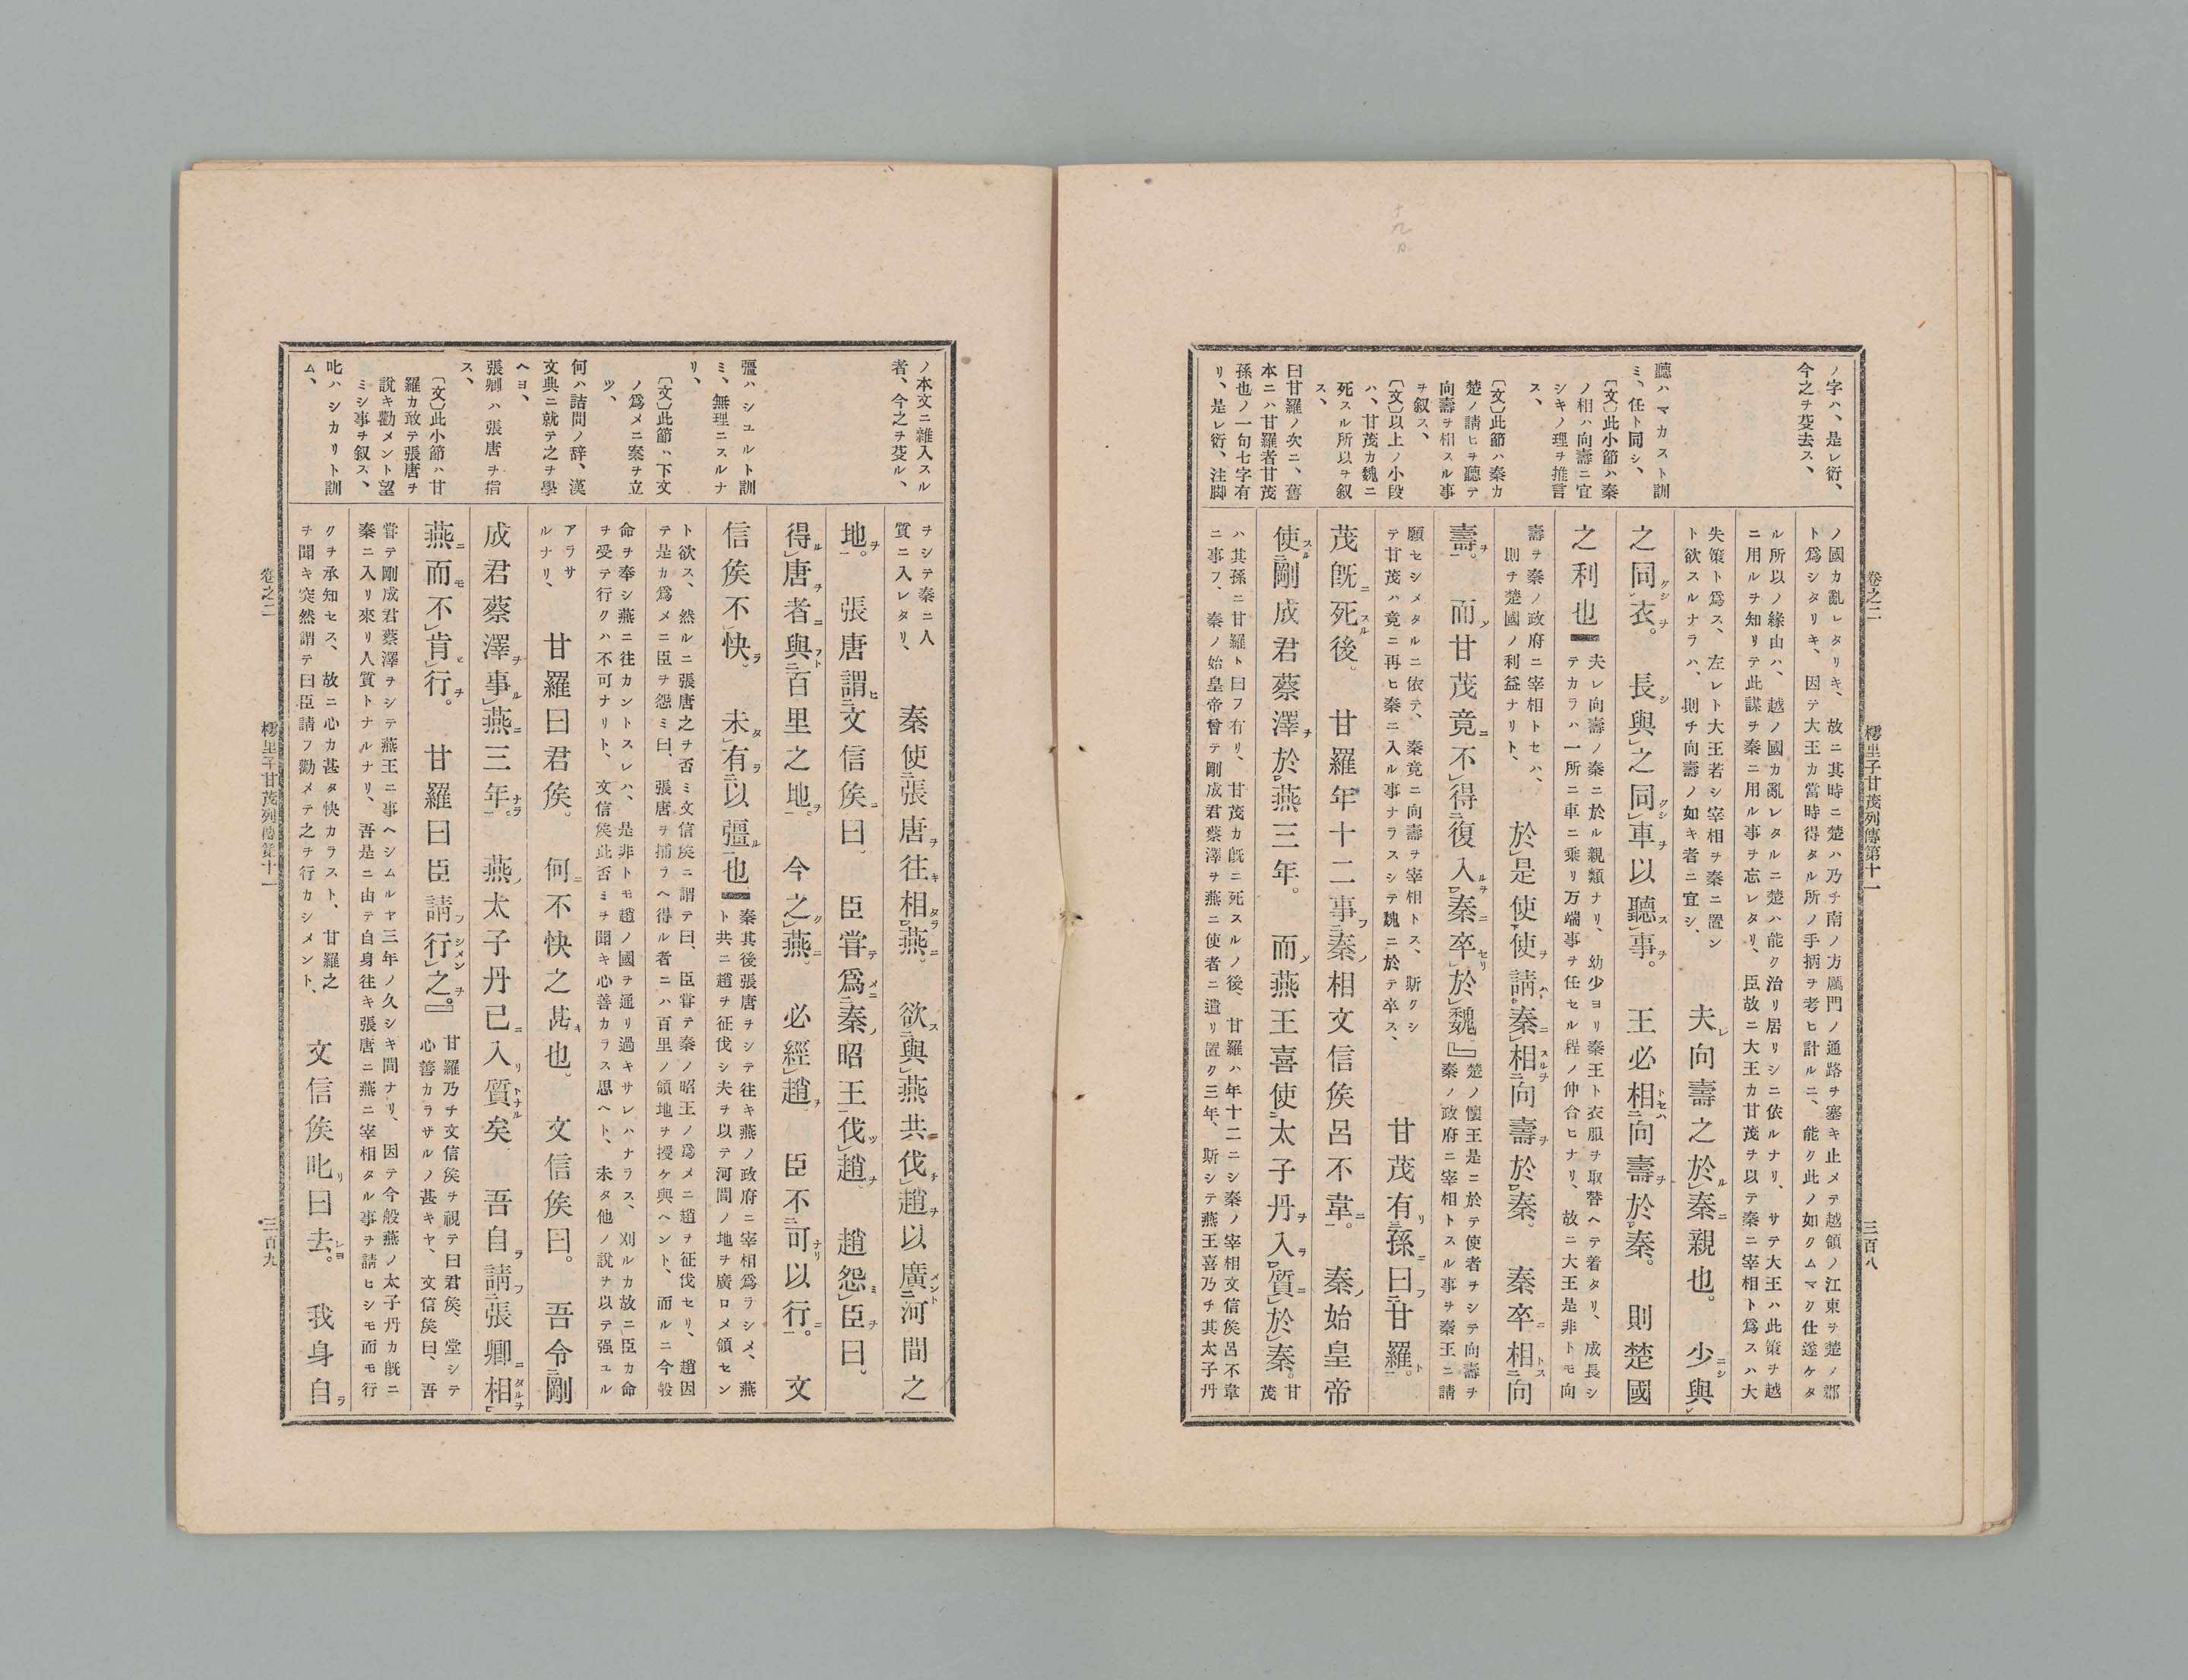 十九日
卷之二
樗里子甘茂列傳第十一
三百八
ノ字ハ、是レ衍、
今之ヲ芟去ス、
聽ハマカスト訓
ミ、任ト同シ、
〔文〕此小節ハ秦
ノ相ハ向壽ニ宜
シキノ理ヲ推言
ス、
〔文〕此節ハ秦カ
楚ノ請ヒヲ聽テ
向壽ヲ相スル事
ヲ叙ス、
〔文〕以上ノ小段
ハ、甘茂カ魏ニ
死スル所以ヲ叙
ス、
曰甘羅ノ次ニ、舊
本ニハ甘羅者甘茂
孫也ノ一句七字有
リ、是レ衍、注脚
ノ國カ亂レタリキ、故ニ其時ニ楚ハ乃チ南ノ方厲門ノ通路ヲ塞キ止メテ越領ノ江東ヲ楚ノ郡
ト爲シタリキ、因テ大王カ當時得タル所ノ手柄ヲ考ヒ計ルニ、能ク此ノ如クムマク仕遂ケタ
ル所以ノ緣由ハ、越ノ國カ亂レタルニ楚ハ能ク治リ居リシニ依ルナリ、サテ大王ハ此策ヲ越
ニ用ルヲ知リテ此謀ヲ秦ニ用ル事ヲ忘レタリ、臣故ニ大王カ甘茂ヲ以テ秦ニ宰相ト爲スハ大
失策ト爲ス、左レト大王若シ宰相ヲ秦ニ置ン
ト欲スルナラハ、則チ向壽ノ如キ者ニ宜シ、
夫向壽之於秦親也。少與
之同衣。長與之同車以聽事。王必相向壽於秦。則楚國
之利也
夫レ向壽ノ秦ニ於ル親類ナリ、幼少ヨリ秦王ト衣服ヲ取替ヘテ着タリ、成長シ
テカラハ一所ニ車ニ乘リ万端事ヲ任セル程ノ仲合ヒナリ、故ニ大王是非トモ向
壽ヲ秦ノ政府ニ宰相トセハ、
則チ楚國ノ利益ナリト、
於是使使請秦相向壽於秦。秦卒相向
壽。而甘茂竟不得復入秦卒於魏』
楚ノ懷王是ニ於テ使者ヲシテ向壽ヲ
秦ノ政府ニ宰相トスル事ヲ秦王ニ請
願セシメタルニ依テ、秦竟ニ向壽ヲ宰相トス、斯クシ
テ甘茂ハ竟ニ再ヒ秦ニ入ル事ナラスシテ魏ニ於テ卒ス、
甘茂有孫曰甘羅。
茂既死後。甘羅年十二事秦相文信侯呂不韋。秦始皇帝
使剛成君蔡澤於燕三年。而燕王喜使太子丹入質於秦。
甘茂
ハ其孫ニ甘羅ト曰フ有リ、甘茂カ既ニ死スルノ後、甘羅ハ年十二ニシ秦ノ宰相文信侯呂不韋
ニ事フ、秦ノ始皇帝曾テ剛成君蔡澤ヲ燕ニ使者ニ遣リ置ク三年、斯シテ燕王喜乃チ其太子丹
ノ本文ニ雜入スル
者、今之ヲ芟ル、
彊ハシユルト訓
ミ、無理ニスルナ
リ、
〔文〕此節ハ下文
ノ爲メニ案ヲ立
ツ、
何ハ詰問ノ辞、漢
文典ニ就テ之ヲ學
ヘヨ、
張卿ハ張唐ヲ指
ス、
〔文〕此小節ハ甘
羅カ敢テ張唐ヲ
説キ勸メント望
ミシ事ヲ叙ス、
叱ハシカリト訓
ム、
ヲシテ秦ニ入
質ニ入レタリ、
秦使張唐往相燕。欲與燕共伐趙以廣河間之
地。張唐謂文信侯曰。臣甞爲秦昭王伐趙。趙怨臣曰。
得唐者與百里之地。今之燕。必經趙。臣不可以行。文
信侯不快。未有以彊也
秦其後張唐ヲシテ往キ燕ノ政府ニ宰相爲ラシメ、燕
ト共ニ趙ヲ征伐シ夫ヲ以テ河間ノ地ヲ廣ロメ領セン
ト欲ス、然ルニ張唐之ヲ否ミ文信侯ニ謂テ曰、臣甞テ秦ノ昭王ノ爲メニ趙ヲ征伐セリ、趙因
テ是カ爲メニ臣ヲ怨ミ曰、張唐ヲ捕ラヘ得ル者ニハ百里ノ領地ヲ授ケ與ヘント、而ルニ今般
命ヲ奉シ燕ニ往カントスレハ、是非トモ趙ノ國ヲ通リ過キサレハナラス、刈ルカ故ニ臣カ命
ヲ受テ行クハ不可ナリト、文信侯此否ミヲ聞キ心善カラス思ヘト、未タ他ノ説ヲ以テ强ユル
アラサ
ルナリ、
甘羅曰君侯。何不快之甚也。文信侯曰。吾令剛
成君蔡澤事燕三年。燕太子丹已入質矣。吾自請張卿相
燕而不肯行。甘羅曰臣請行之。』
甘羅乃チ文信侯ヲ視テ曰君侯、堂シテ
心善カラサルノ甚キヤ、文信侯曰、吾
甞テ剛成君蔡澤ヲシテ燕王ニ事ヘシムルヤ三年ノ久シキ間ナリ、因テ今般燕ノ太子丹カ既ニ
秦ニ入リ來リ人質トナルナリ、吾是ニ由テ自身往キ張唐ニ燕ニ宰相タル事ヲ請ヒシモ而モ行
クヲ承知セス、故ニ心カ甚タ快カラスト、甘羅之
ヲ聞キ突然謂テ曰臣請フ勸メテ之ヲ行カシメント、
文信侯叱曰去。我身自
卷之二
樗里子甘茂列傳第十一
三百九